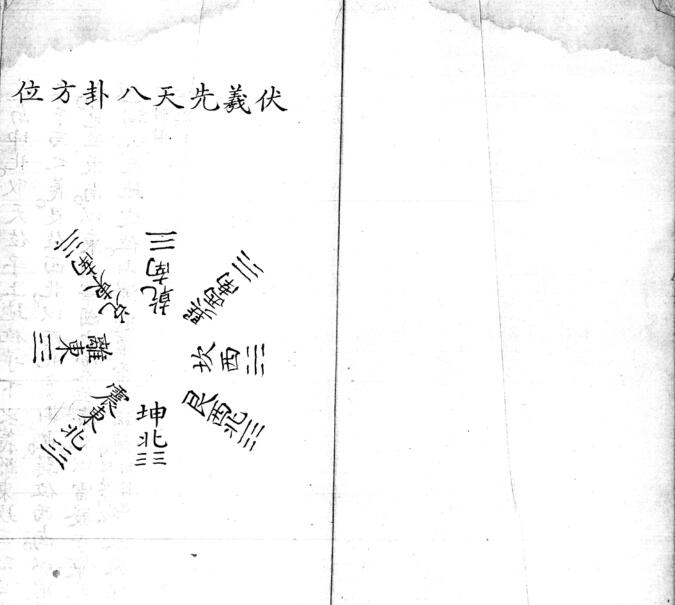 伏羲先天八卦方位
乾南
兌東南
離東
震東北
巽西南
坎西
艮西北
坤北